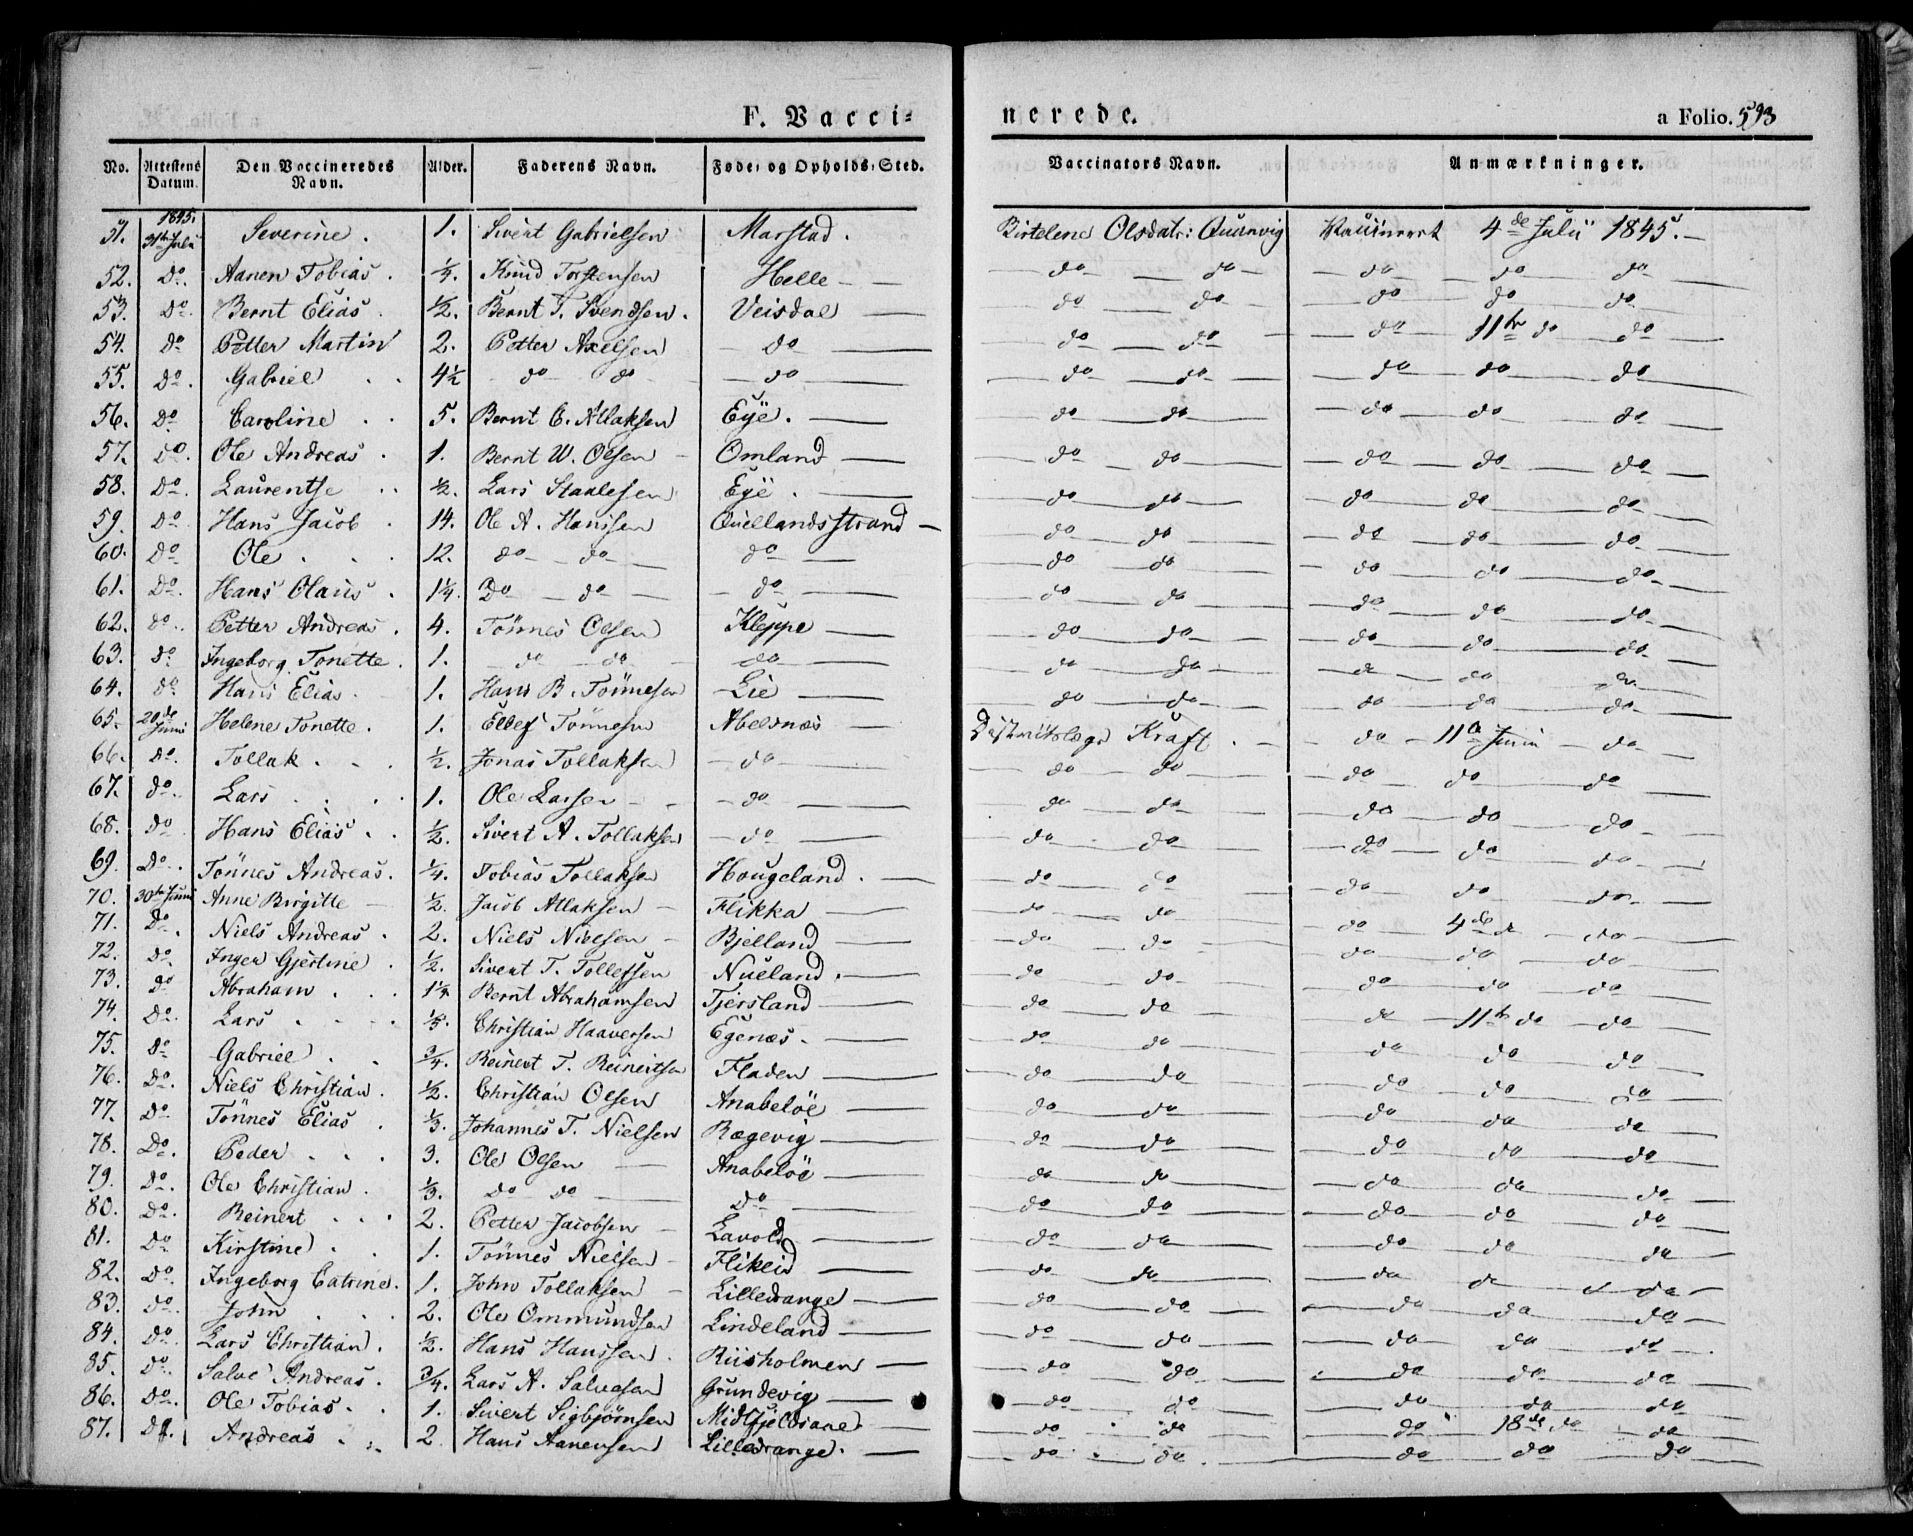 F. Vacci-
nerede.
a Folio. 593
No. Attestens Datum. Den Vaccineredes Navn. Alder. Faderens Navn. Føde- og Opholds-Sted. Vaccinators Navn. Anmærkninger.
1845.
51. 31te Juli Severine. 1. Sivert Gabrielsen Marstad. Birtelene Olsdatr: Vaccineret 4de Juli 1845.
52. Do. Aanen Tobias. 1/4. Knud Torstensen Helle do do do do do
53. Do. Bernt Elias. 1/2. Bernt T. Svendsen. Veisdal do do do do do
54. Do Petter Martin 2. Petter Axelsen Do do do do 11te do do
55. Do. Gabriel 4 1/2 do do do do do do do do
56. Do Caroline 5. Bernt E. Atlaksen Eye. do do do do do
57. Do. Ole Andreas. 1. Bernt W. Olsen Omland do do do do do
58. Do. Laurentse 1/2. Lars Staalesen Eye. do do do do do
59. Do Hans Jacob. 14. Ole A. Hanssen Qvellandsstrand do do do do do
60. Do Ole 12. do do do do do do do do
61. Do. Hans Olaus. 1 1/4. Do do do do do do do do
62. do. Petter Andreas. 4. Tönnes Olsen Kleppe do do do do do
63. do Ingeborg Tonette. 1. do do do do do do do do
64. do Hans Elias. 1. Hans B. Tönnesen Lie do do do do do
65. 20de Juni Helene Tonette. 1. Ellef Tönnesen Abelsnæs Districtslæge Kraft. do 11te Juni do
66. do. Tollak 1/2. Jonas Tollaksen do do do do do do
67. do. Lars 1. Ole Larsen do do do do do do
68. do Hans Elias. 1/2. Sivert A. Tollaksen do do do do do do
69. Do. Tönnes Andreas. 1/4. Tobias Tollaksen Hougeland. do do do do do
70. 30te Juni Anne Birgitte 1/2. Jacob Atlaksen Flikka do do do 4de do do
71. Do. Niels Andreas. 2. Niels Nielsen Bjelland do do do do do
72. do Inger Gjertine. 1/2. Sivert T. Tollefsen Nueland. do do do do do
73. do Abraham 1 1/4 Bernt Abrahamsen Tjersland do do do 11te do do
74. Do. Lars 1/3. Christian Haaversen Egenæs. do do do do do
75. do Gabriel. 3/4. Reinert T. Reinertsen Fladen do do do do do
76. Do. Niels Christian. 1/2. Christian Olsen Anabelöe do do do do do
77. Do Tönnes Elias. 1/3. Johannes T. Nielsen Rægevig do do do do do
78. Do. Peder 3. Ole Olsen Anabelöe do do do do do
79. Do. Ole Christian. 1/3. Do Do Do do do do do do
80. Do. Reinert 2. Petter Jacobsen Lavold do do do do do
81. Do Kirstine 1. Tönnes Nielsen Flikeid do do do do do
82. Do. Ingeborg Catrine. 1. John Tollaksen Lilledrange do do do do do
83. do. John 2. Ole Ommundsen Lindeland do do do do do
84. Do. Lars Christian. 1/2. Hans Hanssen. Riisholmen do do do do do
85. Do. Salve Andreas. 3/4. Lars A. Salvesen Grundevig do do do do do
86. Do. Ole Tobias. 1. Sivert Sigbjörnsen Midtfjeldsane do do do 18de do do
87. Do. Andreas 2 Hans Aanensen Lilledrange. do do do do do